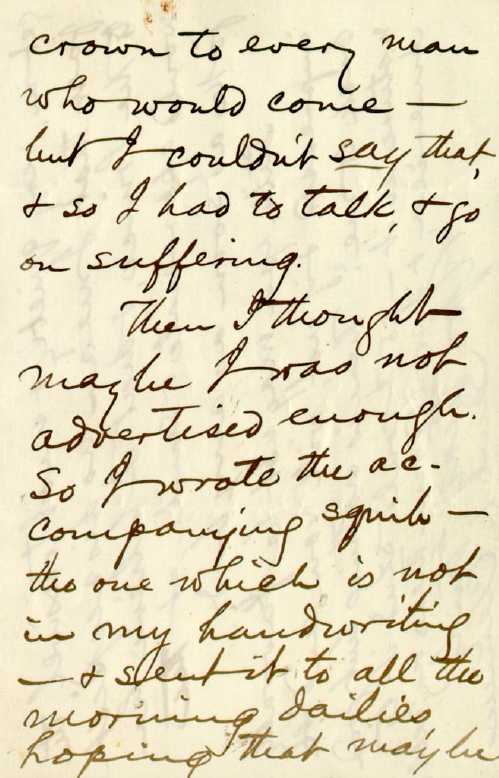 crown to every man
who would come —
but I couldn't say that,
& so I had to talk, & go
on suffering.
Then I thought
maybe I was not
advertised enough.
So I wrote the ac-
companying squib —
the one which is not
in my handwriting
— & sent it to all the
morning dailies
hoping that maybe